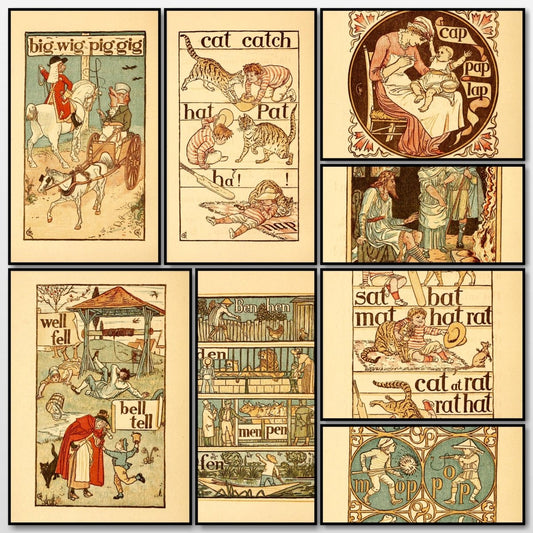 big wig pig gig
cat catch
hat Pat
ha! !
nap
cap
pap
lap
well
fell
bell
tell
Ben hen
den
men pen
fen
sat bat
mat hat rat
cat at rat
rat hat
mop pop